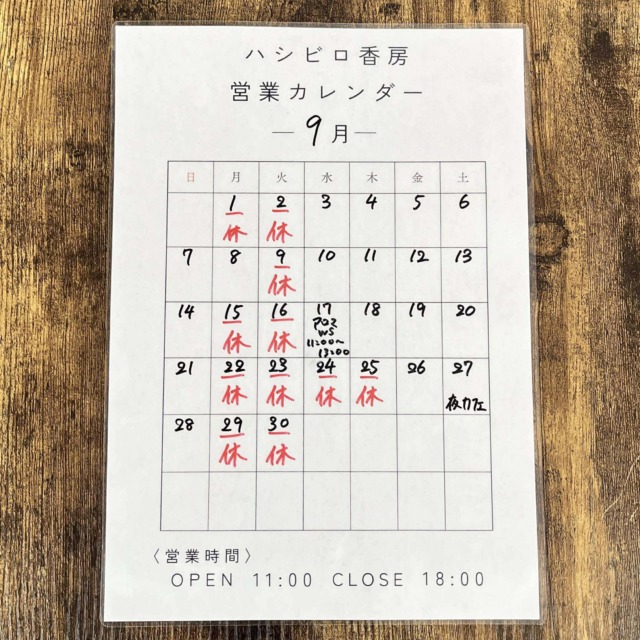 ハシビロ香房
営業カレンダー
―9月―
日 月 火 水 木 金 土
1 2 3 4 5 6
休 休
7 8 9 10 11 12 13
休
14 15 16 17 18 19 20
休 休 アロマ
WS
11:00〜
13:00
21 22 23 24 25 26 27
休 休 休 休 夜カフェ
28 29 30
休 休
〈営業時間〉
OPEN 11:00 CLOSE 18:00